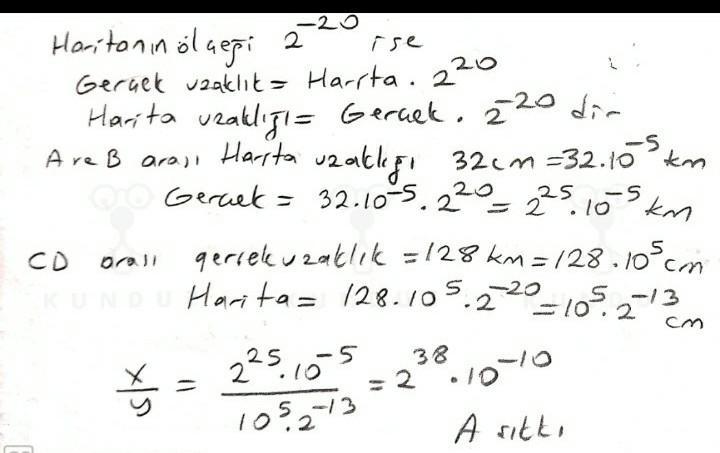 Haritanın ölçeği 2^-20 ise
Gerçek uzaklık = Harita . 2^20
Harita uzaklığı = Gerçek . 2^-20 dir
A ve B arası Harita uzaklığı 32cm = 32.10^-5 km
Gerçek = 32.10^-5 . 2^20 = 2^25 . 10^-5 km
CD arası gerçek uzaklık = 128 km = 128.10^5 cm
KUNDU
Harita = 128.10^5 . 2^-20 = 10^5 . 2^-13 cm
x/y = 2^25 . 10^-5 / 10^5 . 2^-13 = 2^38 . 10^-10
A şıkkı